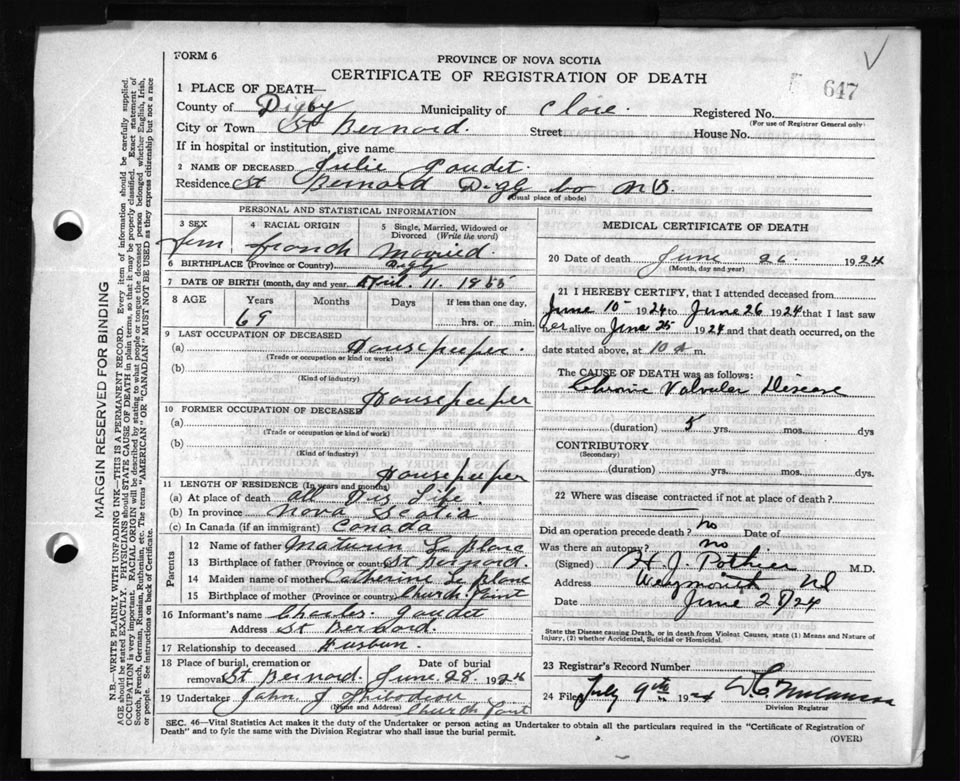 FORM 6
PROVINCE OF NOVA SCOTIA
CERTIFICATE OF REGISTRATION OF DEATH
647
1 PLACE OF DEATH—
County of Digby Municipality of Clare. Registered No.
(For use of Registrar General only)
City or Town St Bernard. Street House No.
If in hospital or institution, give name
2 NAME OF DECEASED Julie Gaudet.
Residence St Bernard Digby Co N.S.
(Usual place of abode)
PERSONAL AND STATISTICAL INFORMATION
3 SEX 4 RACIAL ORIGIN 5 Single, Married, Widowed or Divorced (Write the word)
Fem French Married.
6 BIRTHPLACE (Province or Country) Digby
7 DATE OF BIRTH (month, day and year) April. 11. 1855
8 AGE Years Months Days If less than one day,
69 hrs. or min.
9 LAST OCCUPATION OF DECEASED
(a) Housekeeper.
(Trade or occupation or kind of work)
(b)
(Kind of industry)
10 FORMER OCCUPATION OF DECEASED Housekeeper
(a)
(Trade or occupation or kind of work)
(b)
(Kind of industry)
Housekeeper
11 LENGTH OF RESIDENCE (In years and months)
(a) At place of death all his Life.
(b) In province Nova Scotia
(c) In Canada (if an immigrant) Canada
Parents
12 Name of father Maturin Le Blanc
13 Birthplace of father (Province or country) St Bernard.
14 Maiden name of mother Catherine Le Blanc
15 Birthplace of mother (Province or country) Church Point
16 Informant's name Charles. Gaudet
Address St Bernard.
17 Relationship to deceased Husban.
18 Place of burial, cremation or removal St Bernard. Date of burial June. 28. 1924
19 Undertaker John J Thibodeau
(Name and Address) Church Point
MEDICAL CERTIFICATE OF DEATH
20 Date of death June 26. 1924
(Month, day and year)
21 I HEREBY CERTIFY, that I attended deceased from
June 10 1924 to June 26 1924 that I last saw
her alive on June 25 1924 and that death occurred, on
date stated above, at 10 a m.
The CAUSE OF DEATH was as follows:
Chronic Valvular Disease
(duration) 5 yrs. mos. dys
CONTRIBUTORY
(Secondary)
(duration) yrs. mos. dys.
22 Where was disease contracted if not at place of death?
Did an operation precede death? no Date of
Was there an autopsy? no
(Signed) H. J. Pothier M.D.
Address Weymouth NS
Date June 27/24
State the Disease causing Death, or in death from Violent Causes, state (1) Means and Nature of Injury, (2) whether Accidental, Suicidal or Homicidal.
23 Registrar's Record Number
24 Filed July 9th 1924
Division Registrar
SEC. 46—Vital Statistics Act makes it the duty of the Undertaker or person acting as Undertaker to obtain all the particulars required in the "Certificate of Registration of
Death" and to fyle the same with the Division Registrar who shall issue the burial permit.
(OVER)
MARGIN RESERVED FOR BINDING
N.B.—WRITE PLAINLY WITH UNFADING INK—THIS IS A PERMANENT RECORD. Every item of information should be carefully supplied.
AGE should be stated EXACTLY. PHYSICIANS should STATE CAUSE OF DEATH in plain terms, so that it may be properly classified. Exact statement of
OCCUPATION is very important. RACIAL ORIGIN will be described by stating to what people or tongue the deceased person belonged whether English, Irish,
Scotch, French, German, Russian, Ruthenian, etc. The terms "AMERICAN" OR "CANADIAN" MUST NOT BE USED as they express citizenship but not a race
or people. See instructions on back of Certificate.